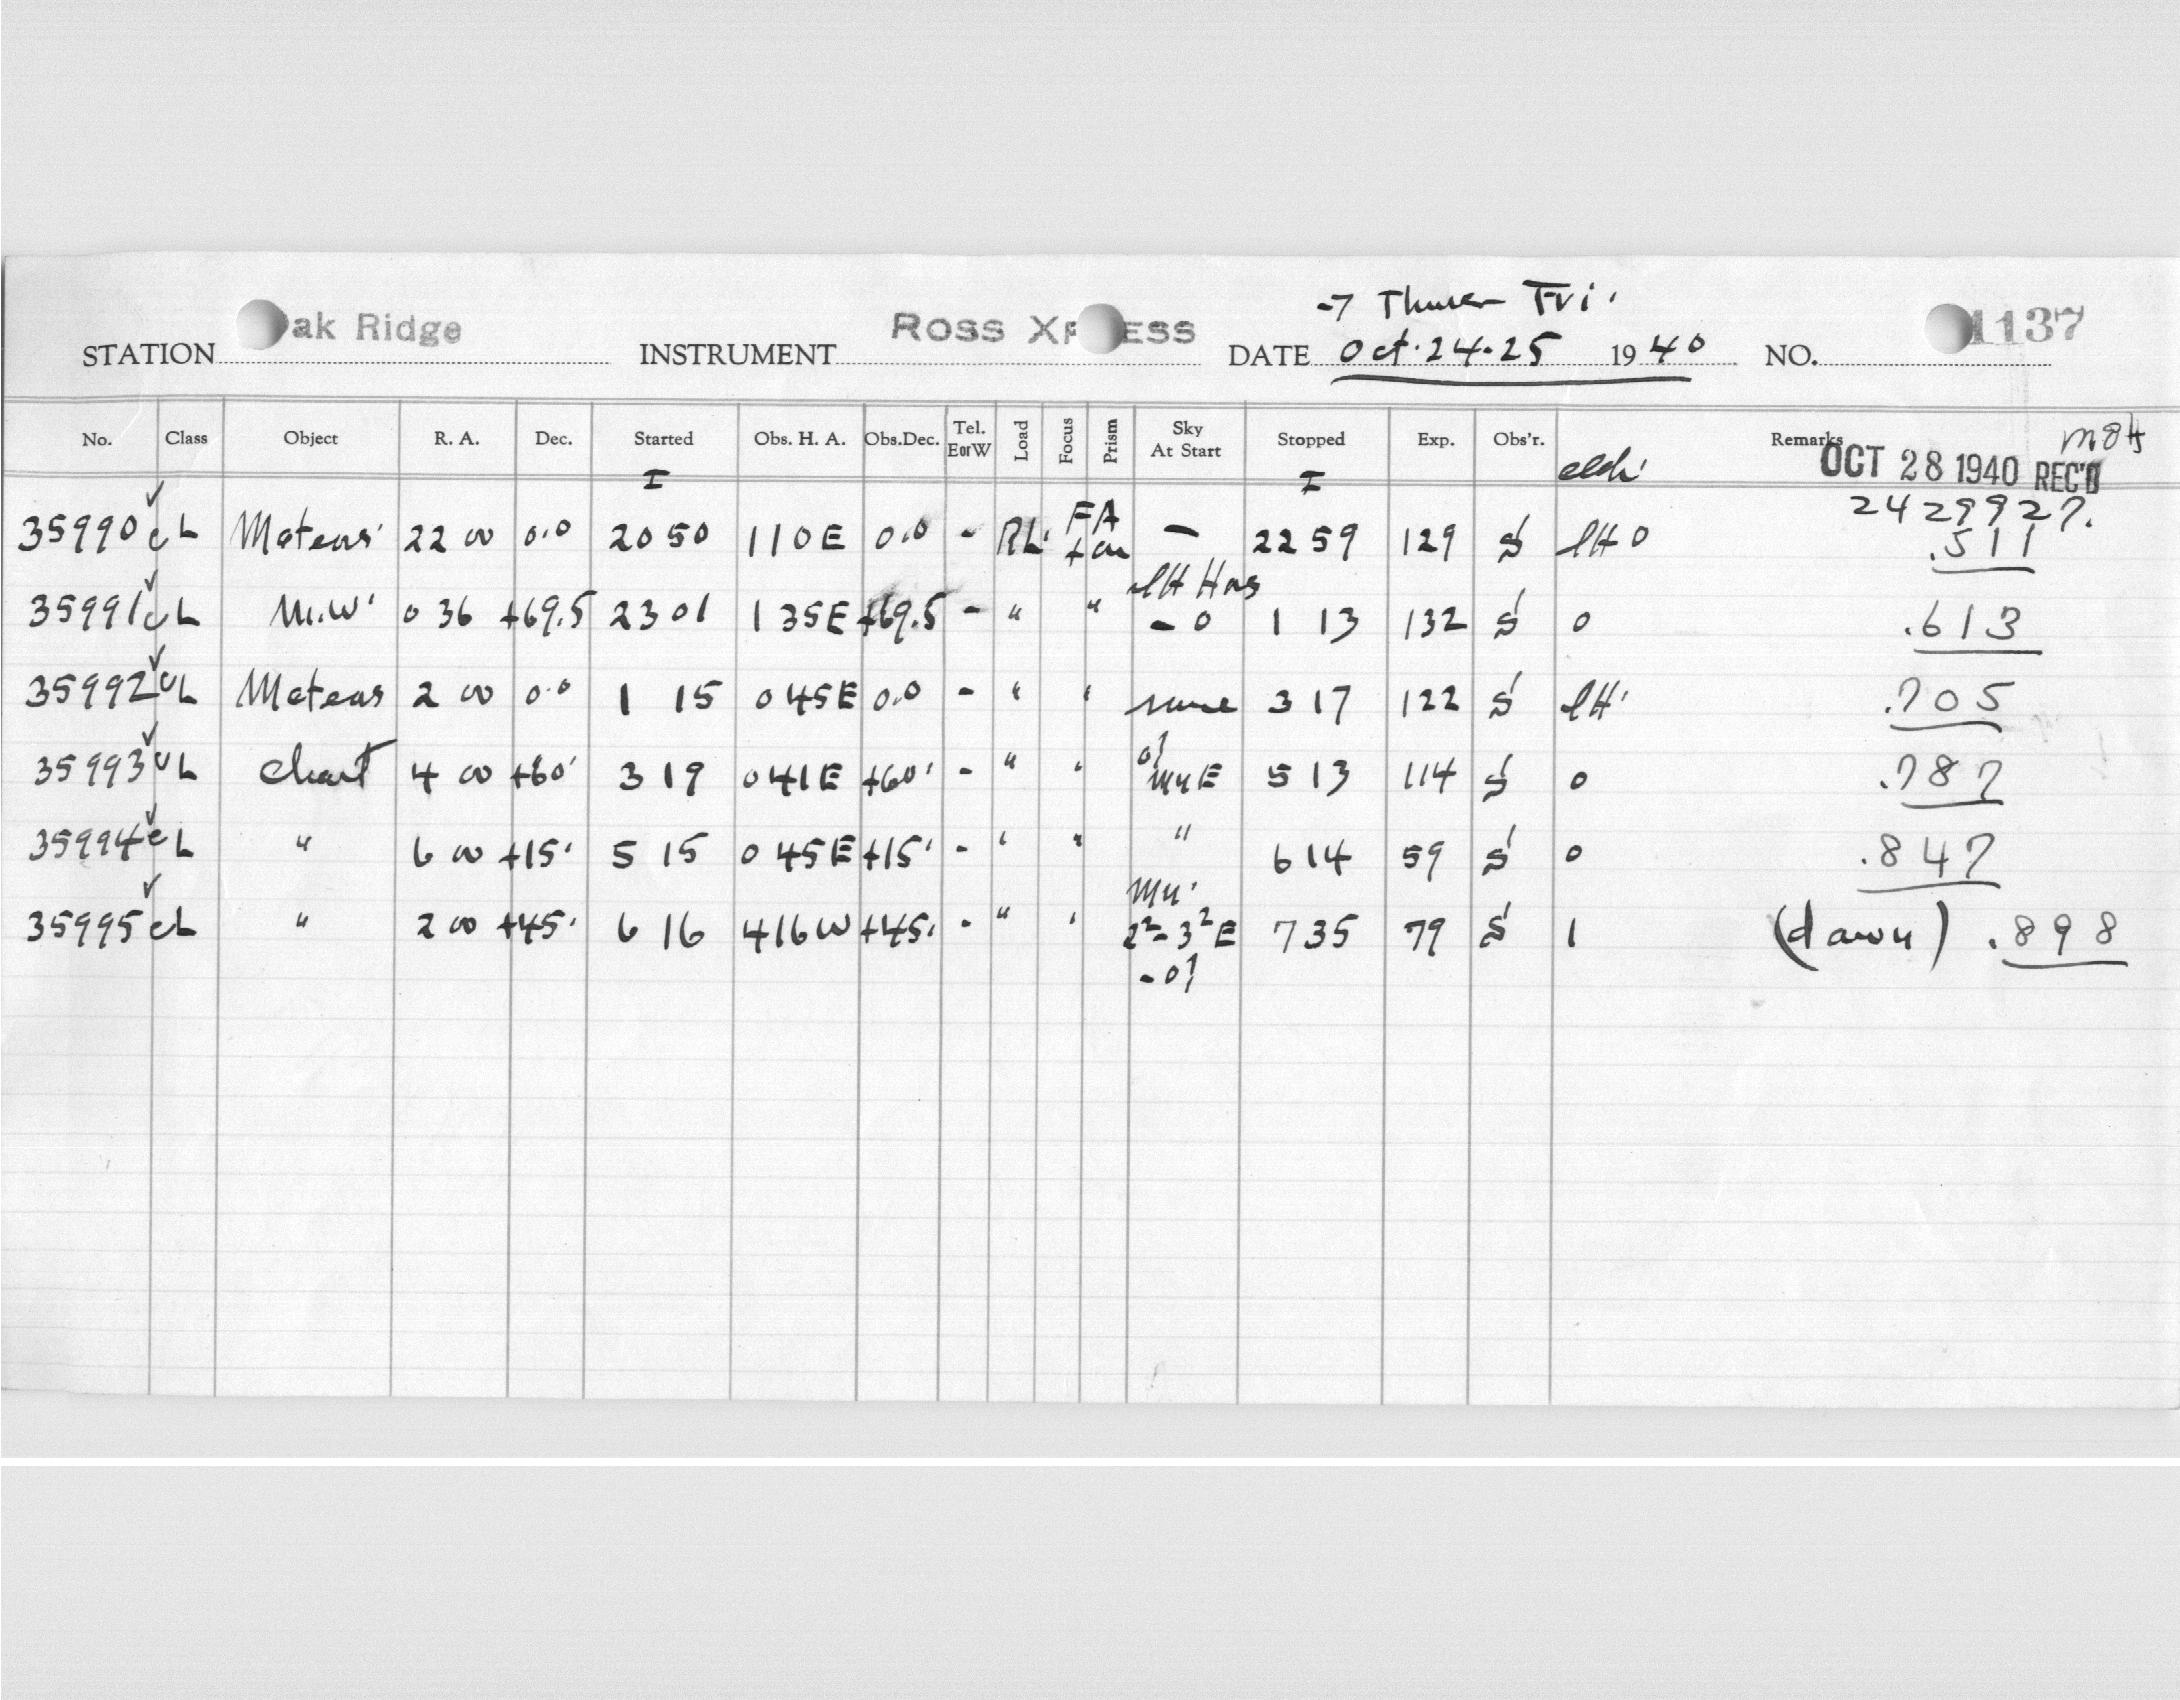 → Thurs Fri.
STATION Oak Ridge INSTRUMENT ROSS XPRESS DATE Oct. 24-25 1940 NO. 1137
No. Class Object R. A. Dec. Started Obs. H. A. Obs.Dec. Tel. EorW Load Focus Prism Sky At Start Stopped Exp. Obs'r. Remarks
I I OCT 28 1940 REC'D
2429927.
35990 cL Meteors 22 00 0.0 20 50 1 10 E 0.0 - RL. FA - 22 59 129 S lH 0 .511
35991 cL M.W. 0 36 +69.5 23 01 1 35 E +69.5 - " " lH Has - 0 1 13 132 S 0 .613
35992 cL Meteors 2 00 0.0 1 15 0 45 E 0.0 - " " same 3 17 122 S lH .705
35993 cL Chart 4 00 +60 3 19 0 41 E +60 - " " 5 13 114 S 0 .787
35994 cL " 6 00 +15 5 15 0 45 E +15 - " " " 6 14 59 S 0 .847
35995 cL " 2 00 +45 6 16 4 16 W +45 - " " 2²-3² E 7 35 79 S 1 (dawn) .898